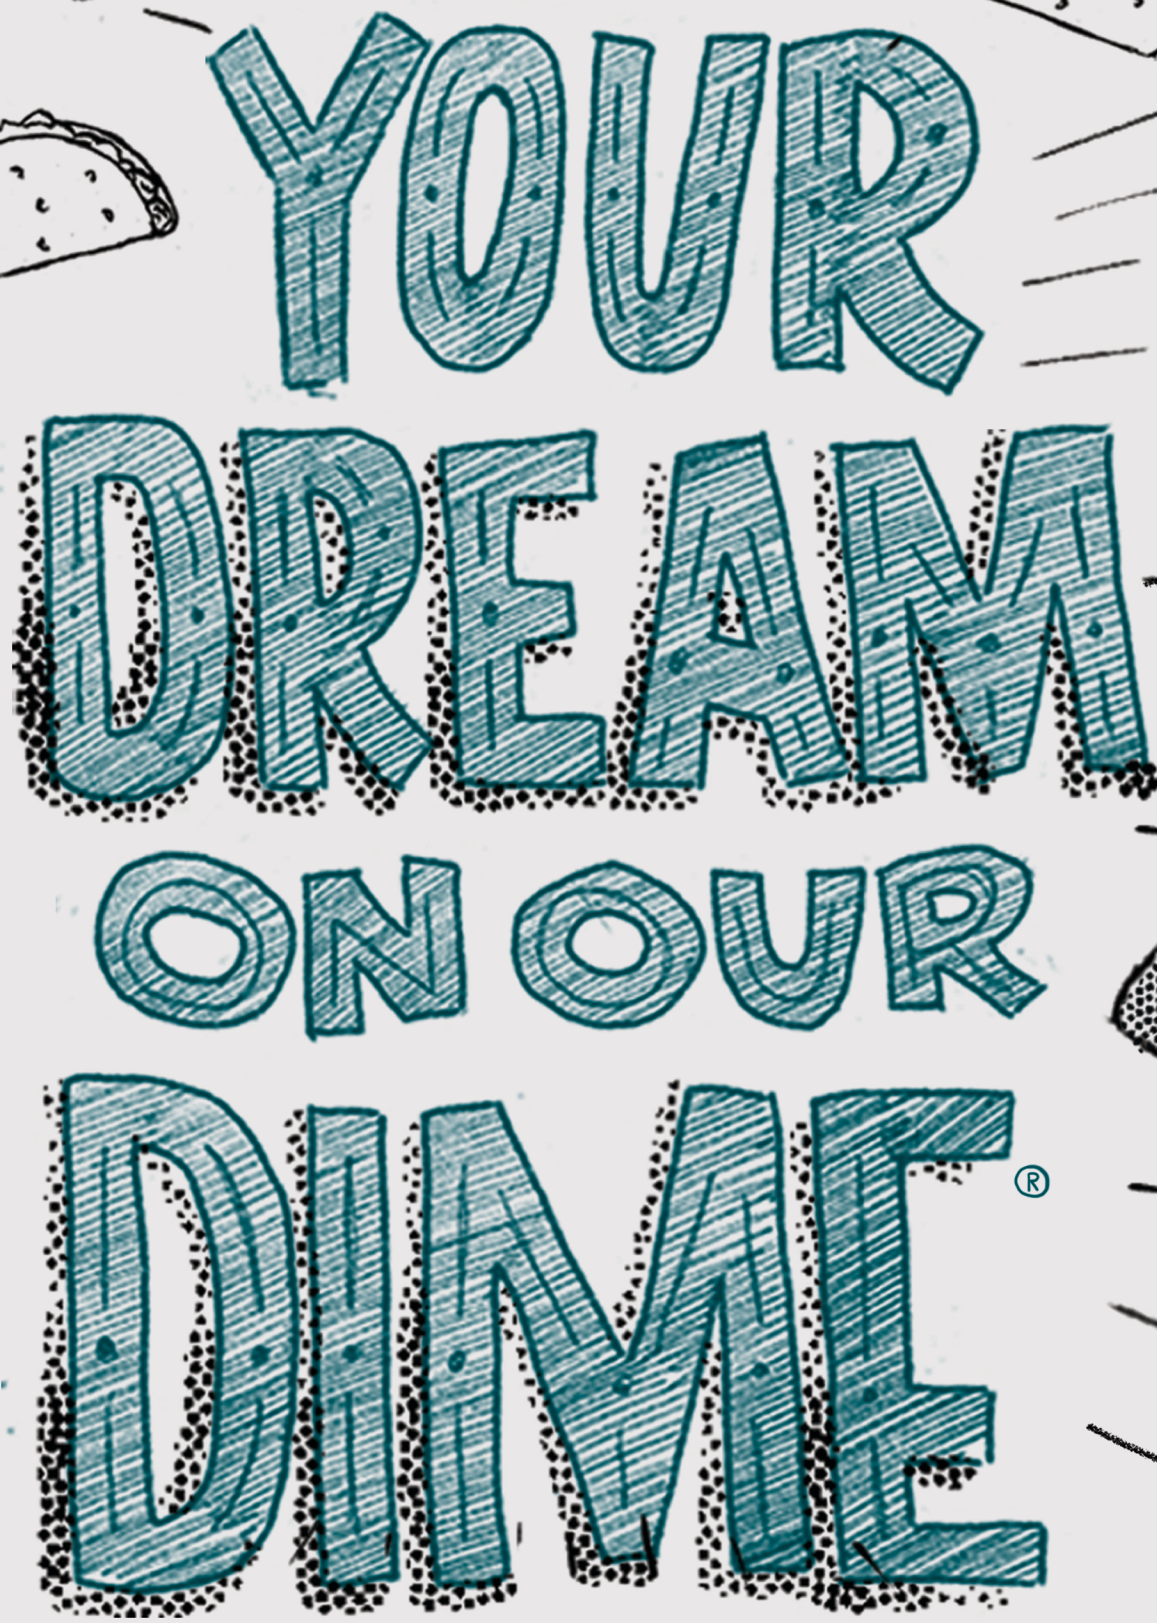 YOUR
DREAM
ON OUR
DIME®